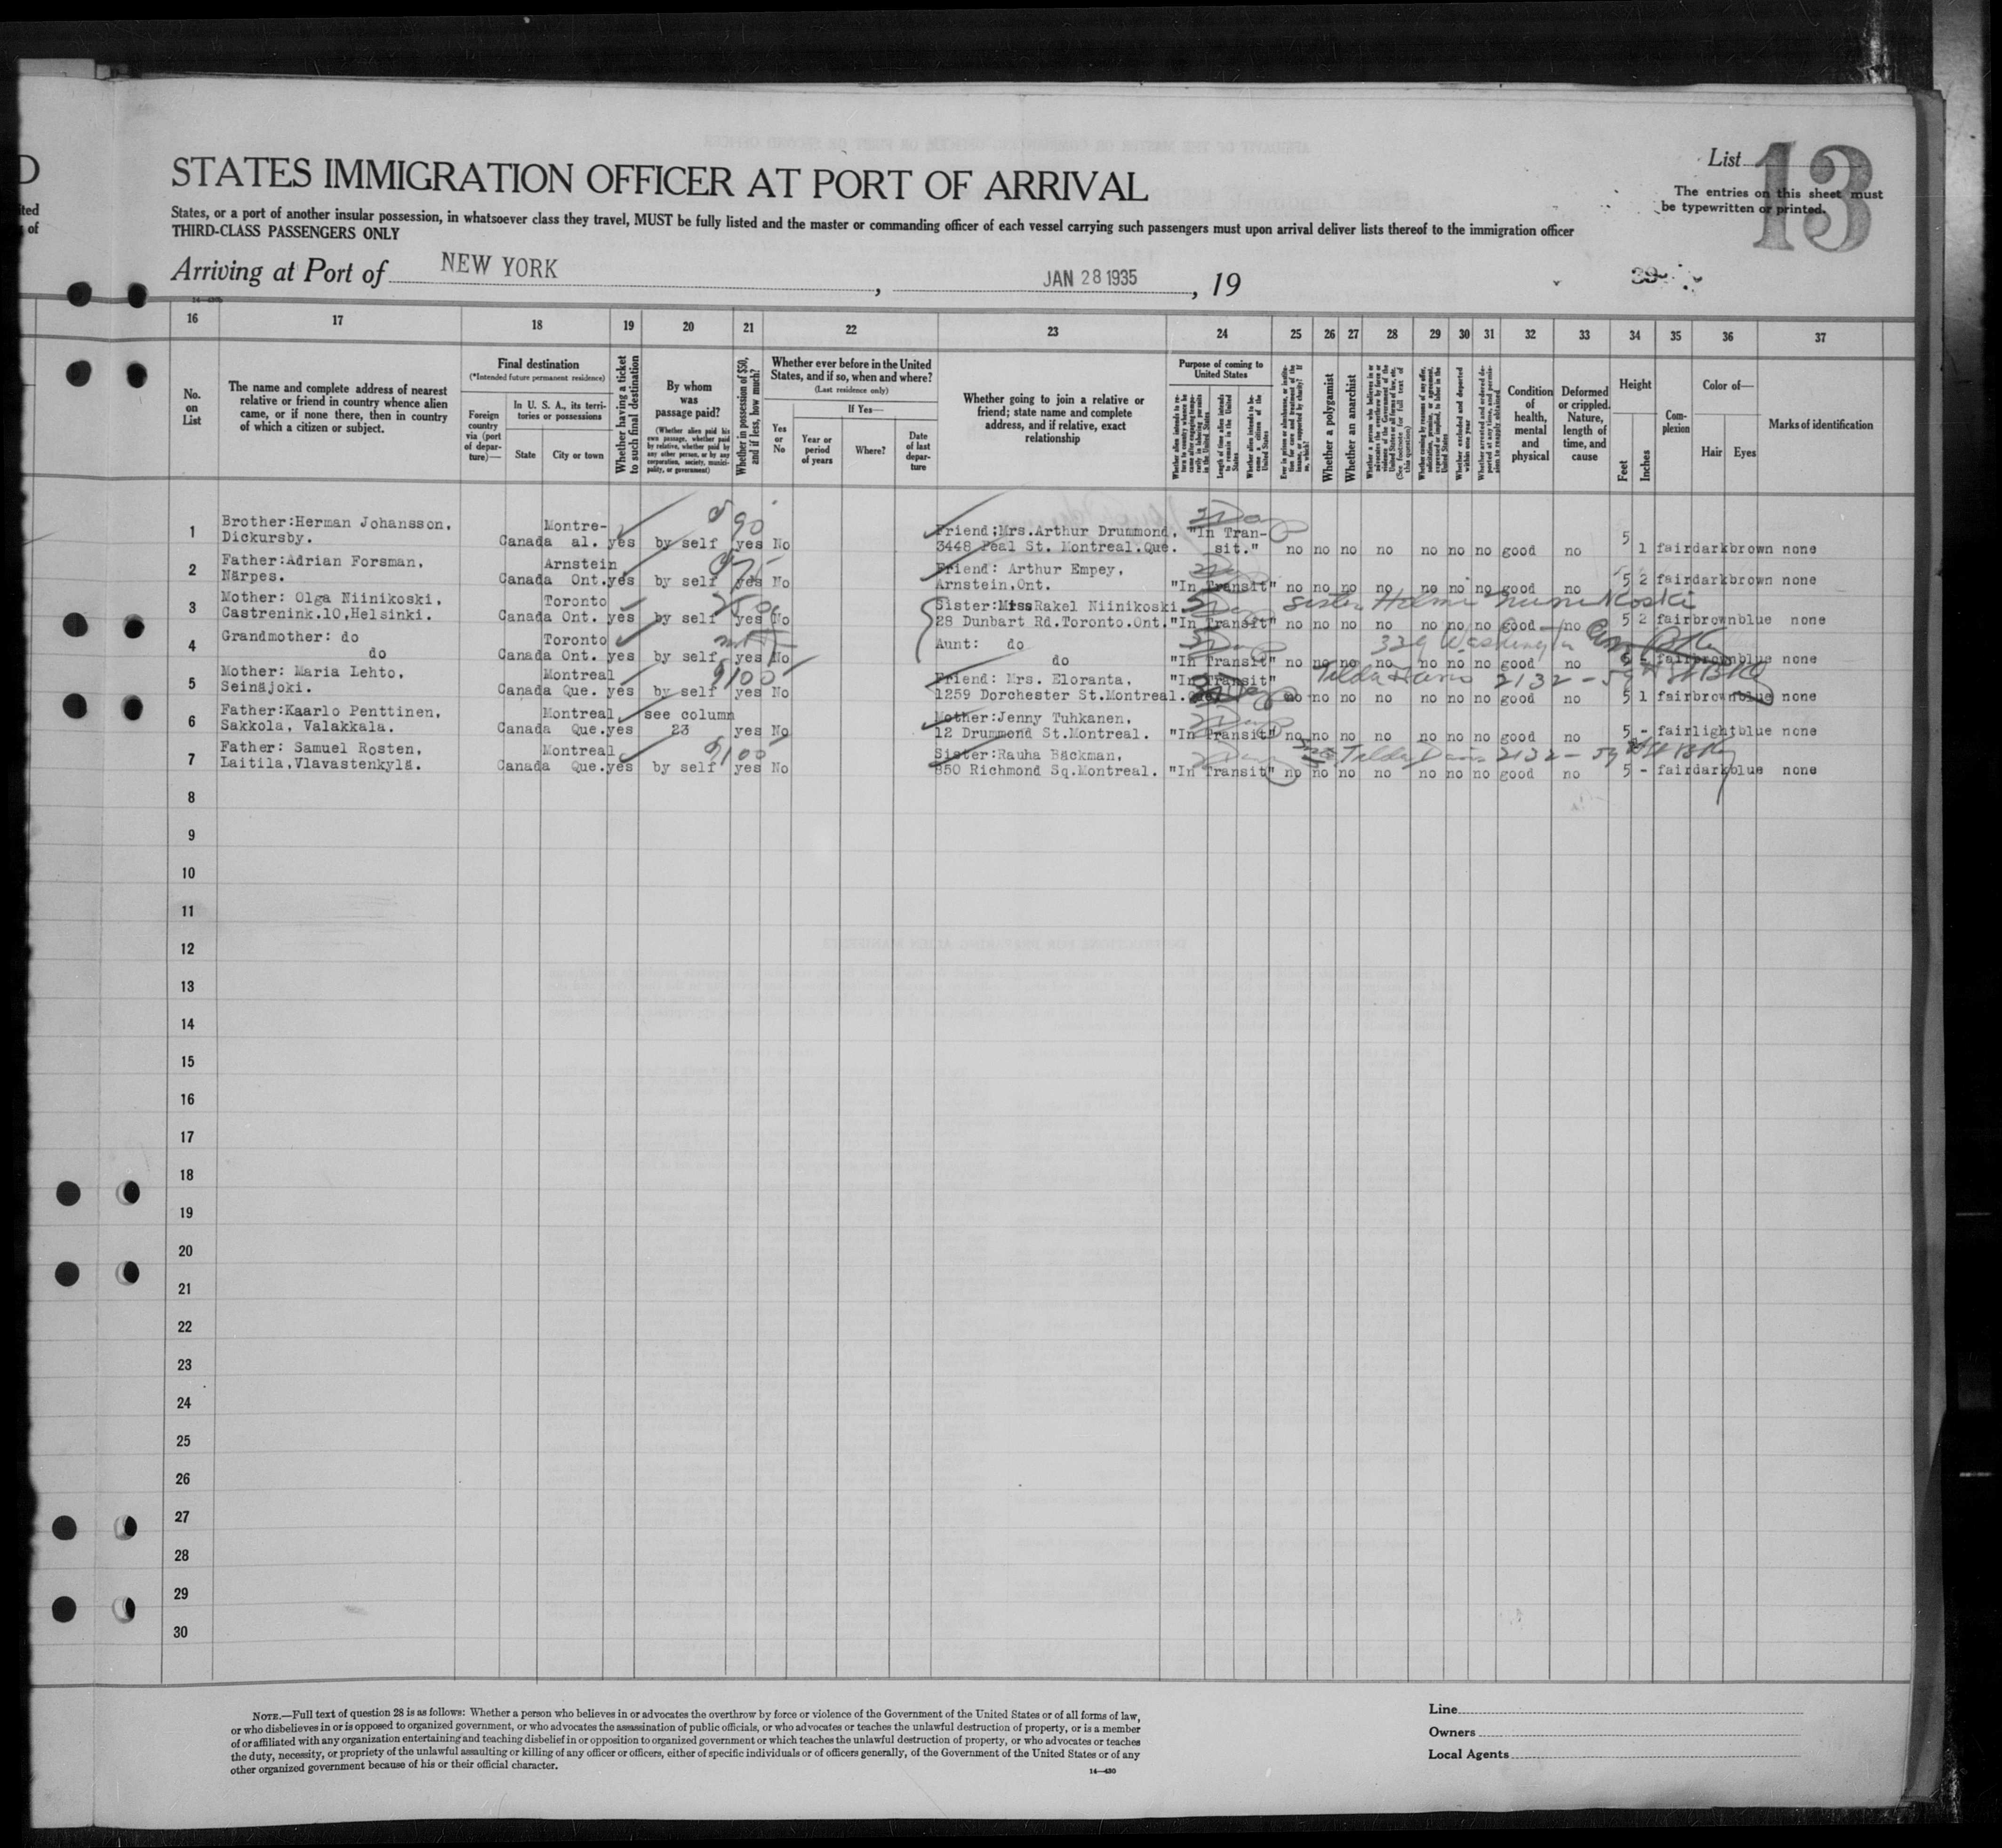 D
ited
of
List 13
STATES IMMIGRATION OFFICER AT PORT OF ARRIVAL
The entries on this sheet must
be typewritten or printed.
States, or a port of another insular possession, in whatsoever class they travel, MUST be fully listed and the master or commanding officer of each vessel carrying such passengers must upon arrival deliver lists thereof to the immigration officer
THIRD-CLASS PASSENGERS ONLY
Arriving at Port of NEW YORK, JAN 28 1935, 19
16 17 18 19 20 21 22 23 24 25 26 27 28 29 30 31 32 33 34 35 36 37
No. on List
The name and complete address of nearest
relative or friend in country whence alien
came, or if none there, then in country
of which a citizen or subject.
Final destination
(*Intended future permanent residence)
Foreign country via (port of departure)—
In U. S. A., its territories or possessions
State
City or town
Whether having a ticket to such final destination
By whom was passage paid?
(Whether alien paid his own passage, whether paid by relative, whether paid by any other person, or by any corporation, society, municipality, or government)
Whether in possession of $50, and if less, how much?
Whether ever before in the United States, and if so, when and where?
(Last residence only)
Yes or No
If Yes—
Year or period of years
Where?
Date of last departure
Whether going to join a relative or
friend; state name and complete
address, and if relative, exact
relationship
Purpose of coming to United States
Whether a polygamist
Whether an anarchist
Condition of health, mental and physical
Deformed or crippled. Nature, length of time, and cause
Height
Feet
Inches
Complexion
Color of—
Hair
Eyes
Marks of identification
1 Brother:Herman Johansson, Montre- $90 Friend;Mrs.Arthur Drummond. "In Tran-
Dickursby. Canada al. yes by self yes No 3448 Peal St. Montreal.Que. sit." no no no no no no no good no 5 1 fair dark brown none
2 Father:Adrian Forsman, Arnstein Friend: Arthur Empey,
Närpes. Canada Ont. yes by self yes No Arnstein.Ont. "In Transit" no no no no no no no good no 5 2 fair dark brown none
3 Mother: Olga Niinikoski, Toronto Sister:Miss Rakel Niinikoski Sister
Castrenink.10,Helsinki. Canada Ont. yes by self yes No 28 Dunbart Rd.Toronto.Ont. "In Transit" no no no no no no no good no 5 2 fair brown blue none
4 Grandmother: do Toronto Aunt: do 329 Washington
do Canada Ont. yes by self yes No do "In Transit" no no no no no no no good no fair brown blue none
5 Mother: Maria Lehto, Montreal $100 Friend: Mrs. Eloranta, "In Transit" Tilda Davis 2132 - 59
Seinäjoki. Canada Que. yes by self yes No 1259 Dorchester St.Montreal. no no no no no no no good no 5 1 fair brown blue none
6 Father:Kaarlo Penttinen, Montreal see column Mother:Jenny Tuhkanen,
Sakkola, Valakkala. Canada Que. yes 23 yes No 12 Drummond St.Montreal. "In Transit" no no no no no no no good no 5 - fair light blue none
7 Father: Samuel Rosten, Montreal $100 Sister:Rauha Bäckman, Tilda Davis 2132 - 59
Laitila,Vlavastenkylä. Canada Que. yes by self yes No 850 Richmond Sq.Montreal. "In Transit" no no no no no no no good no 5 - fair dark blue none
8
9
10
11
12
13
14
15
16
17
18
19
20
21
22
23
24
25
26
27
28
29
30
NOTE.—Full text of question 28 is as follows: Whether a person who believes in or advocates the overthrow by force or violence of the Government of the United States or of all forms of law,
or who disbelieves in or is opposed to organized government, or who advocates the assassination of public officials, or who advocates or teaches the unlawful destruction of property, or is a member
of or affiliated with any organization entertaining and teaching disbelief in or opposition to organized government or which teaches the unlawful destruction of property, or who advocates or teaches
the duty, necessity, or propriety of the unlawful assaulting or killing of any officer or officers, either of specific individuals or of officers generally, of the Government of the United States or of any
other organized government because of his or their official character.
14—430
Line
Owners
Local Agents